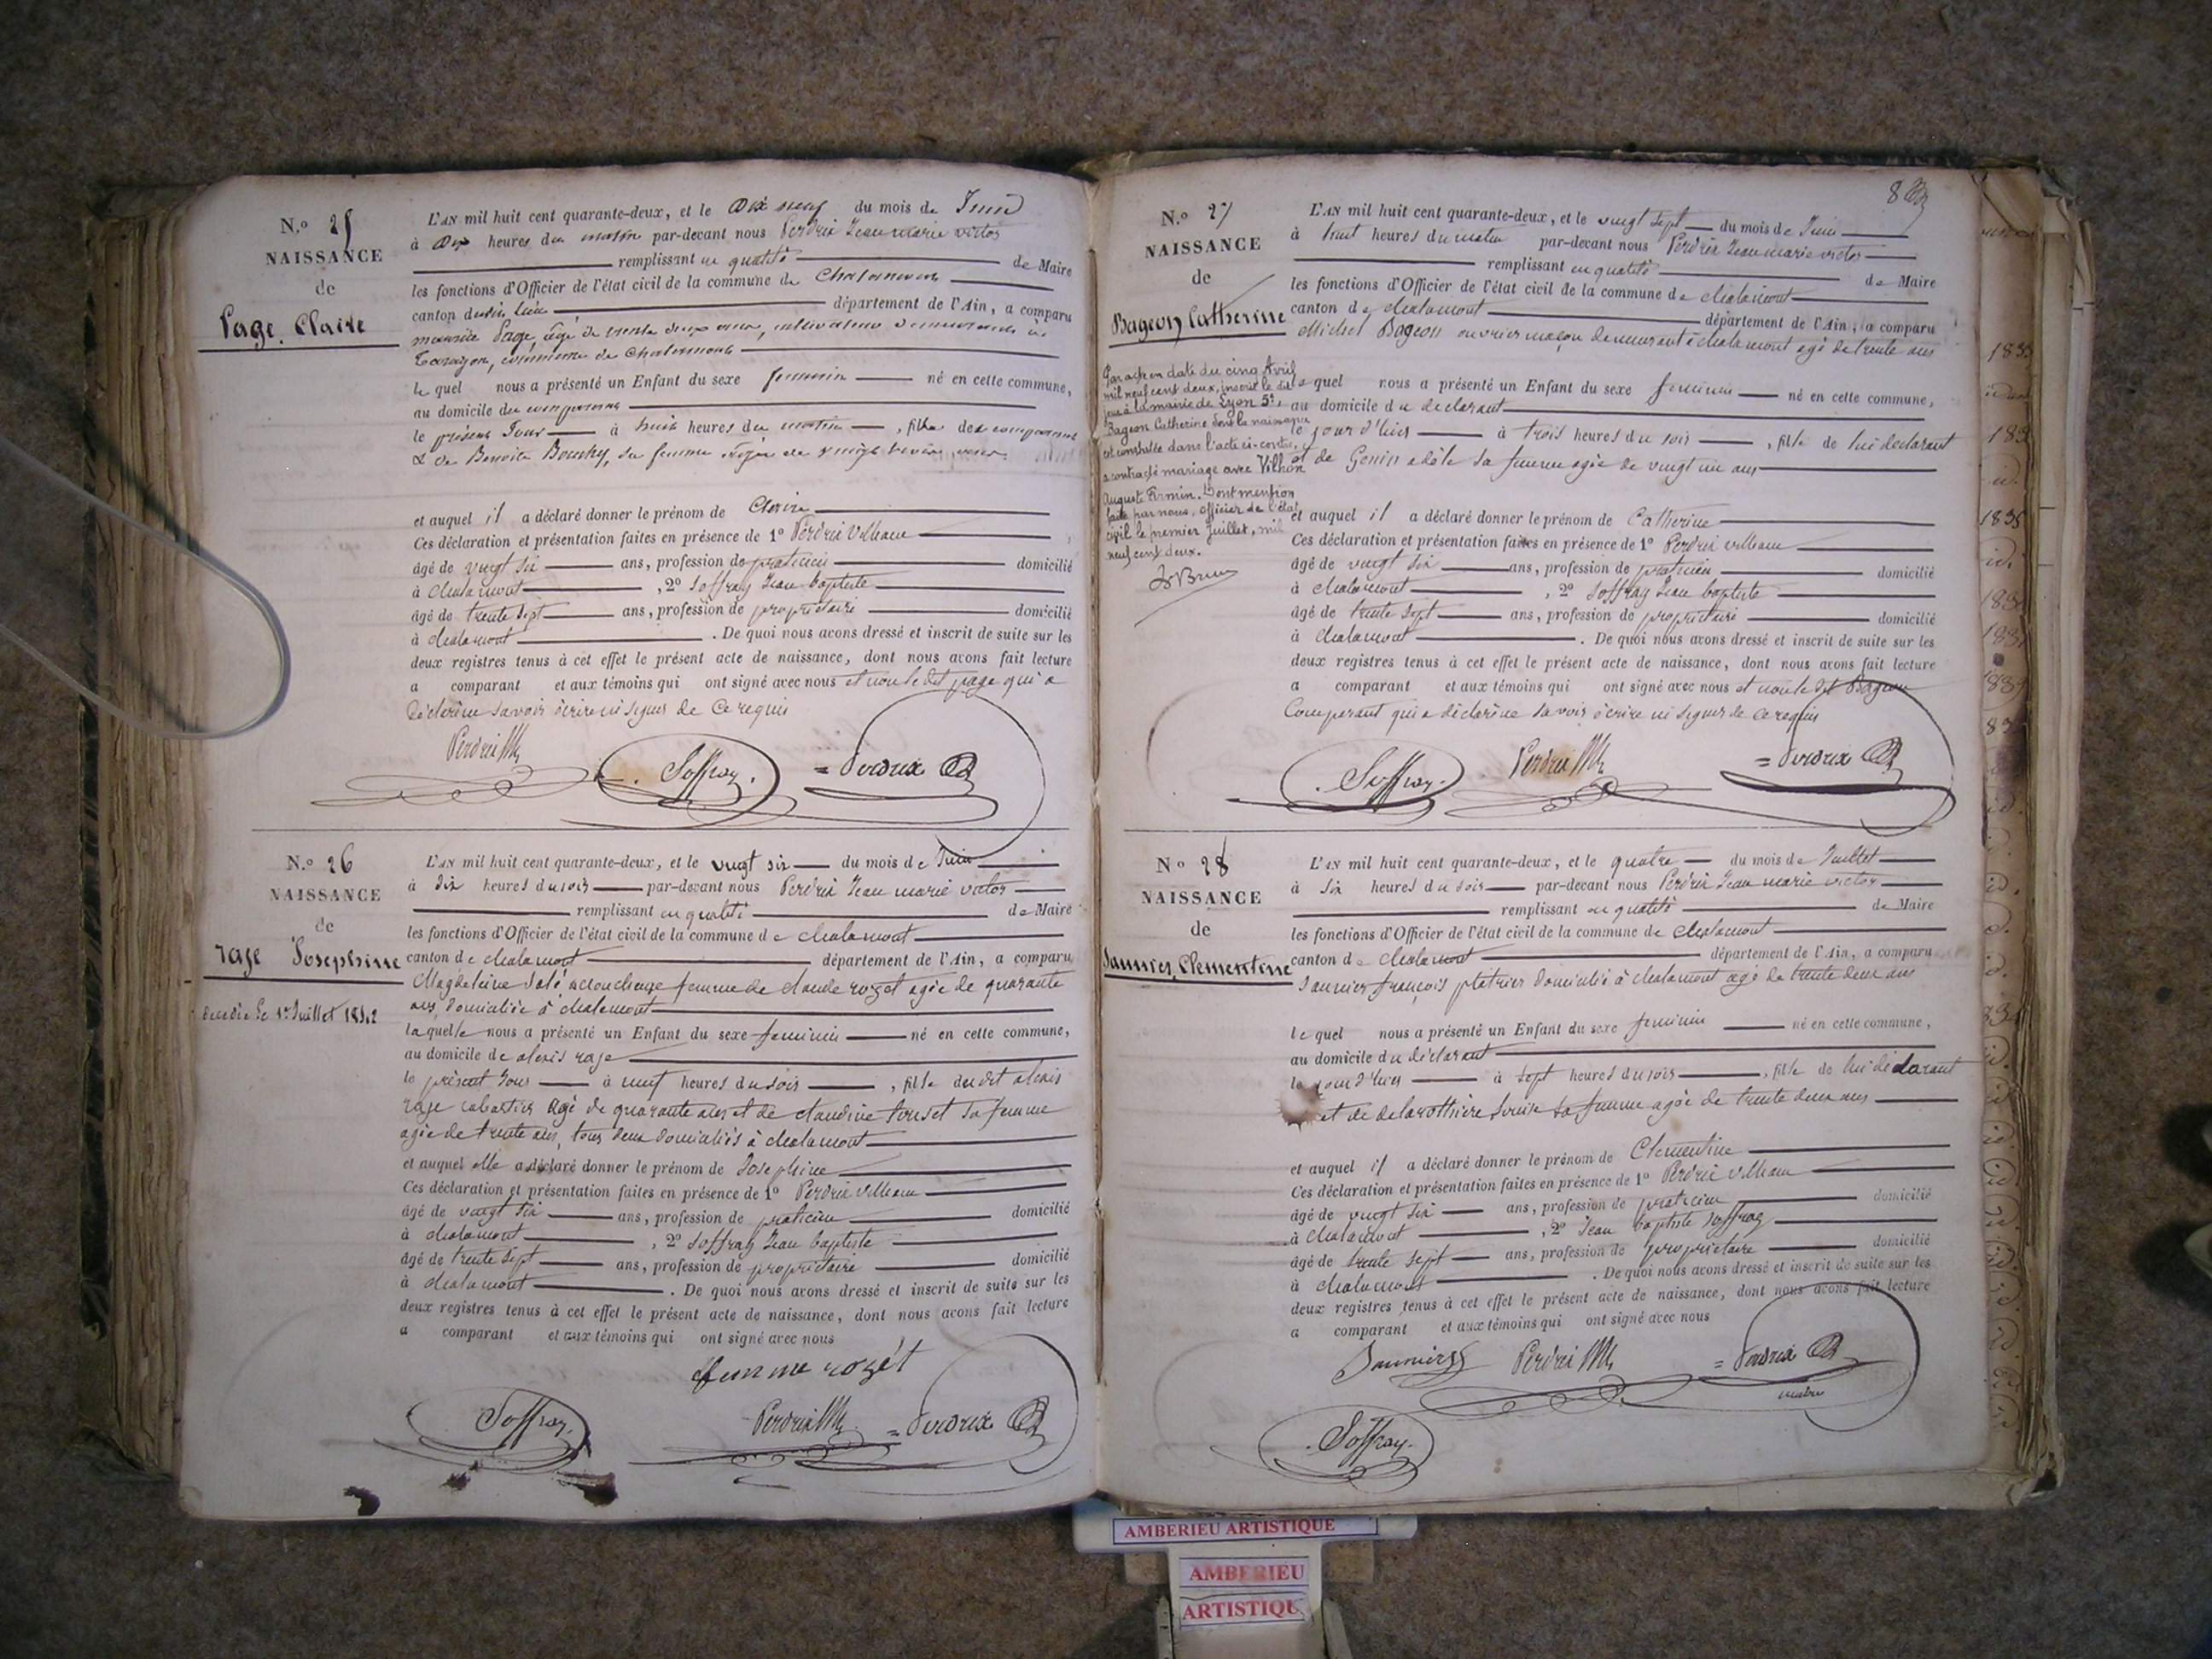 N.o 25
NAISSANCE
de
Page, Claire
L'AN mil huit cent quarante-deux, et le Dix neuf du mois de Juin
à dix heures du matin par-devant nous Perdrix Jean marie victor
remplissant en qualité de Maire
les fonctions d'Officier de l'état civil de la commune de Chalamont
canton dudit lieu département de l'Ain, a comparu
Page, âgé de trente deux ans, cultivateur demeurant à
commune de Chalamont
le quel nous a présenté un Enfant du sexe feminin né en cette commune,
au domicile du comparant
le présent Jour à huit heures du matin, fille du comparant
& de Benoite Bouchy, sa femme âgée de vingt ans
et auquel il a déclaré donner le prénom de Claire
Ces déclaration et présentation faites en présence de 1o Perdrix
âgé de vingt six ans, profession de praticien domicilié
à chalamont, 2o Soffray Jean baptiste
âgé de trente sept ans, profession de propriétaire domicilié
à chalamont. De quoi nous avons dressé et inscrit de suite sur les
deux registres tenus à cet effet le présent acte de naissance, dont nous avons fait lecture
a comparant et aux témoins qui ont signé avec nous et non le dit page qui a
déclaré ne savoir écrire ni signer de ce requis
Perdrix Soffray. = Perdrix
N.o 26
NAISSANCE
de
rage Josephine
decedée le 1er Juillet 1842
L'AN mil huit cent quarante-deux, et le vingt six du mois de Juin
à dix heures du soir par-devant nous Perdrix Jean marie victor
remplissant en qualité de Maire
les fonctions d'Officier de l'état civil de la commune de chalamont
canton de chalamont département de l'Ain, a comparu
Magdeleine Salé accoucheuse femme de claude rozet agée de quarante
ans, domiciliée à chalamont
laquelle nous a présenté un Enfant du sexe feminin né en cette commune,
au domicile de alexis rage
le présent Jour à neuf heures du soir, fille dudit alexis
rage cabartier agé de quarante ans et de claudine sa femme
agée de trente ans, tous deux domiciliés à chalamont
et auquel elle a déclaré donner le prénom de Josephine
Ces déclaration et présentation faites en présence de 1o Perdrix
âgé de vingt six ans, profession de praticien domicilié
à chalamont, 2o Soffray Jean baptiste
âgé de trente sept ans, profession de propriétaire domicilié
à chalamont. De quoi nous avons dressé et inscrit de suite sur les
deux registres tenus à cet effet le présent acte de naissance, dont nous avons fait lecture
a comparant et aux témoins qui ont signé avec nous
femme rozét
Soffray. Perdrix = Perdrix
N.o 27
NAISSANCE
de
Bageon, Catherine
Par acte en date du cinq Avril
mil neuf cent deux, inscrit le dit
jour à la mairie de Lyon 5e,
Bageon Catherine dont la naissance
est constatée dans l'acte ci-contre,
a contracté mariage avec Vilhon
Auguste Firmin. Dont mention
faite par nous, officier de l'état
civil le premier Juillet, mil
neuf cent deux.
L'AN mil huit cent quarante-deux, et le vingt sept du mois de Juin
à huit heures du matin par-devant nous Perdrix Jean marie victor
remplissant en qualité de Maire
les fonctions d'Officier de l'état civil de la commune de chalamont
canton de chalamont département de l'Ain, a comparu
Michel Bageon ouvrier maçon demeurant à chalamont agé de trente ans
le quel nous a présenté un Enfant du sexe feminin né en cette commune,
au domicile du declarant
le jour d'hier à trois heures du soir, fille de lui déclarant
et de Genin adèle sa femme agée de vingt un ans
et auquel il a déclaré donner le prénom de Catherine
Ces déclaration et présentation faites en présence de 1o Perdrix
âgé de vingt six ans, profession de praticien domicilié
à chalamont, 2o Soffray Jean baptiste
âgé de trente sept ans, profession de propriétaire domicilié
à chalamont. De quoi nous avons dressé et inscrit de suite sur les
deux registres tenus à cet effet le présent acte de naissance, dont nous avons fait lecture
a comparant et aux témoins qui ont signé avec nous et non le dit Bageon
Comparant qui a déclaré ne savoir écrire ni signer de ce requis
Soffray. Perdrix = Perdrix
No 28
NAISSANCE
de
Saunier, Clementine
L'AN mil huit cent quarante-deux, et le quatre du mois de Juillet
à six heures du soir par-devant nous Perdrix Jean marie victor
remplissant en qualité de Maire
les fonctions d'Officier de l'état civil de la commune de chalamont
canton de chalamont département de l'Ain, a comparu
Saunier françois platrier domicilié à chalamont agé de trente deux ans
le quel nous a présenté un Enfant du sexe feminin né en cette commune,
au domicile du déclarant
le jour d'hier à sept heures du soir, fille de lui déclarant
et de delarothière Louise sa femme agée de trente deux ans
et auquel il a déclaré donner le prénom de Clementine
Ces déclaration et présentation faites en présence de 1o Perdrix
âgé de vingt six ans, profession de praticien domicilié
à chalamont, 2o Jean baptiste Soffray
âgé de trente sept ans, profession de propriétaire domicilié
à chalamont. De quoi nous avons dressé et inscrit de suite sur les
deux registres tenus à cet effet le présent acte de naissance, dont nous avons fait lecture
a comparant et aux témoins qui ont signé avec nous
Saunier Perdrix = Perdrix
maire
Soffray.
AMBERIEU ARTISTIQUE
AMBERIEU
ARTISTIQU